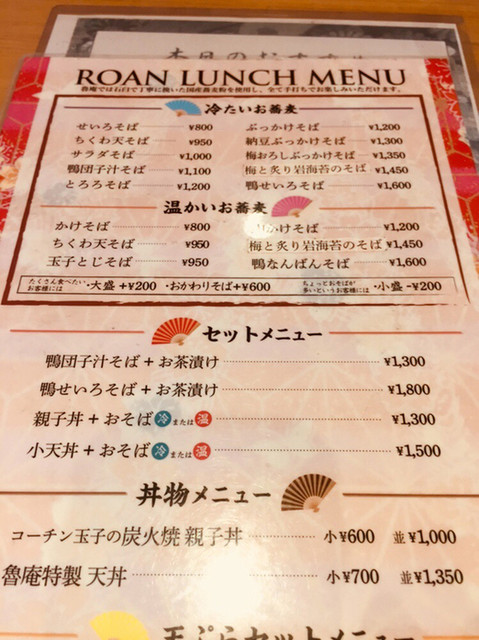 本日のおすすめ
ROAN LUNCH MENU
魯庵では石臼で丁寧に挽いた国産蕎麦粉を使用し、全て手打ちでお楽しみいただけます。
冷たいお蕎麦
せいろそば ¥800
ちくわ天そば ¥950
サラダそば ¥1,000
鴨団子汁そば ¥1,100
とろろそば ¥1,200
ぶっかけそば ¥1,200
納豆ぶっかけそば ¥1,300
梅おろしぶっかけそば ¥1,350
梅と炙り岩海苔のそば ¥1,450
鴨せいろそば ¥1,600
温かいお蕎麦
かけそば ¥800
ちくわ天そば ¥950
玉子とじそば ¥950
かけそば ¥1,200
梅と炙り岩海苔のそば ¥1,450
鴨なんばんそば ¥1,600
たくさん食べたいお客様には ・大盛+¥200 ・おかわりそば+¥600
ちょっとおそばが多いというお客様には ・小盛-¥200
セットメニュー
鴨団子汁そば+お茶漬け ¥1,300
鴨せいろそば+お茶漬け ¥1,800
親子丼+おそば 冷 または 温 ¥1,300
小天丼+おそば 冷 または 温 ¥1,500
丼物メニュー
コーチン玉子の炭火焼 親子丼 小¥600 並¥1,000
魯庵特製 天丼 小¥700 並¥1,350
天ぷらセットメニュー